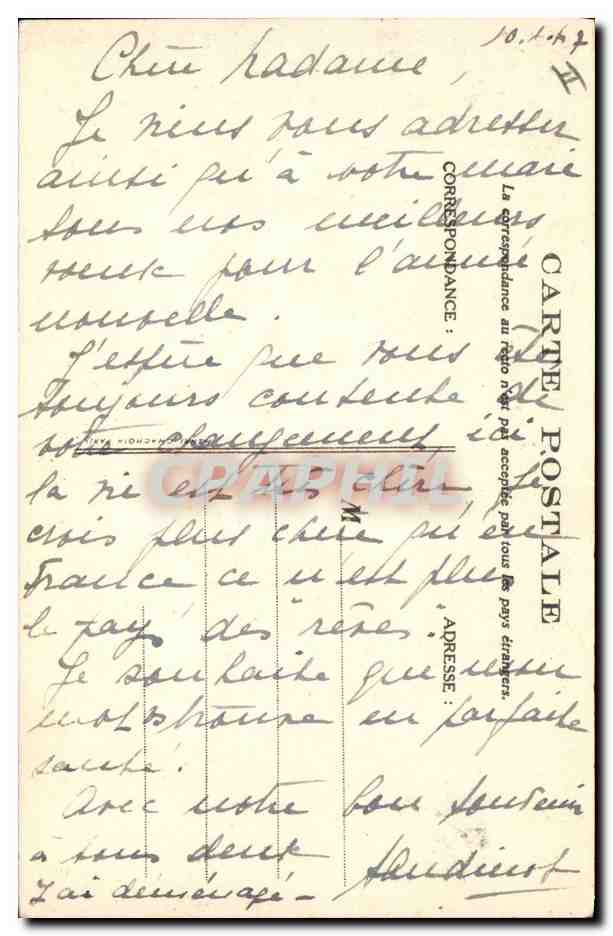 10.1.47
II
Chère Madame,
Je viens vous adresser
ainsi qu'à votre mari
tous nos meilleurs
voeux pour l'année
nouvelle.
J'espère que vous
toujours contente de
votre changement, ici
la vie est très chère je
crois plus chère qu'en
France ce n'est plus
le pays des "rêves".
Je souhaite que mon
mot trouve en parfaite
santé.
Avec notre bon souvenir
à tous deux
J'ai déménagé -
CARTE POSTALE
La correspondance au recto n'est pas acceptée par tous les pays étrangers.
CORRESPONDANCE :
ADRESSE :
M
CPAPHIL